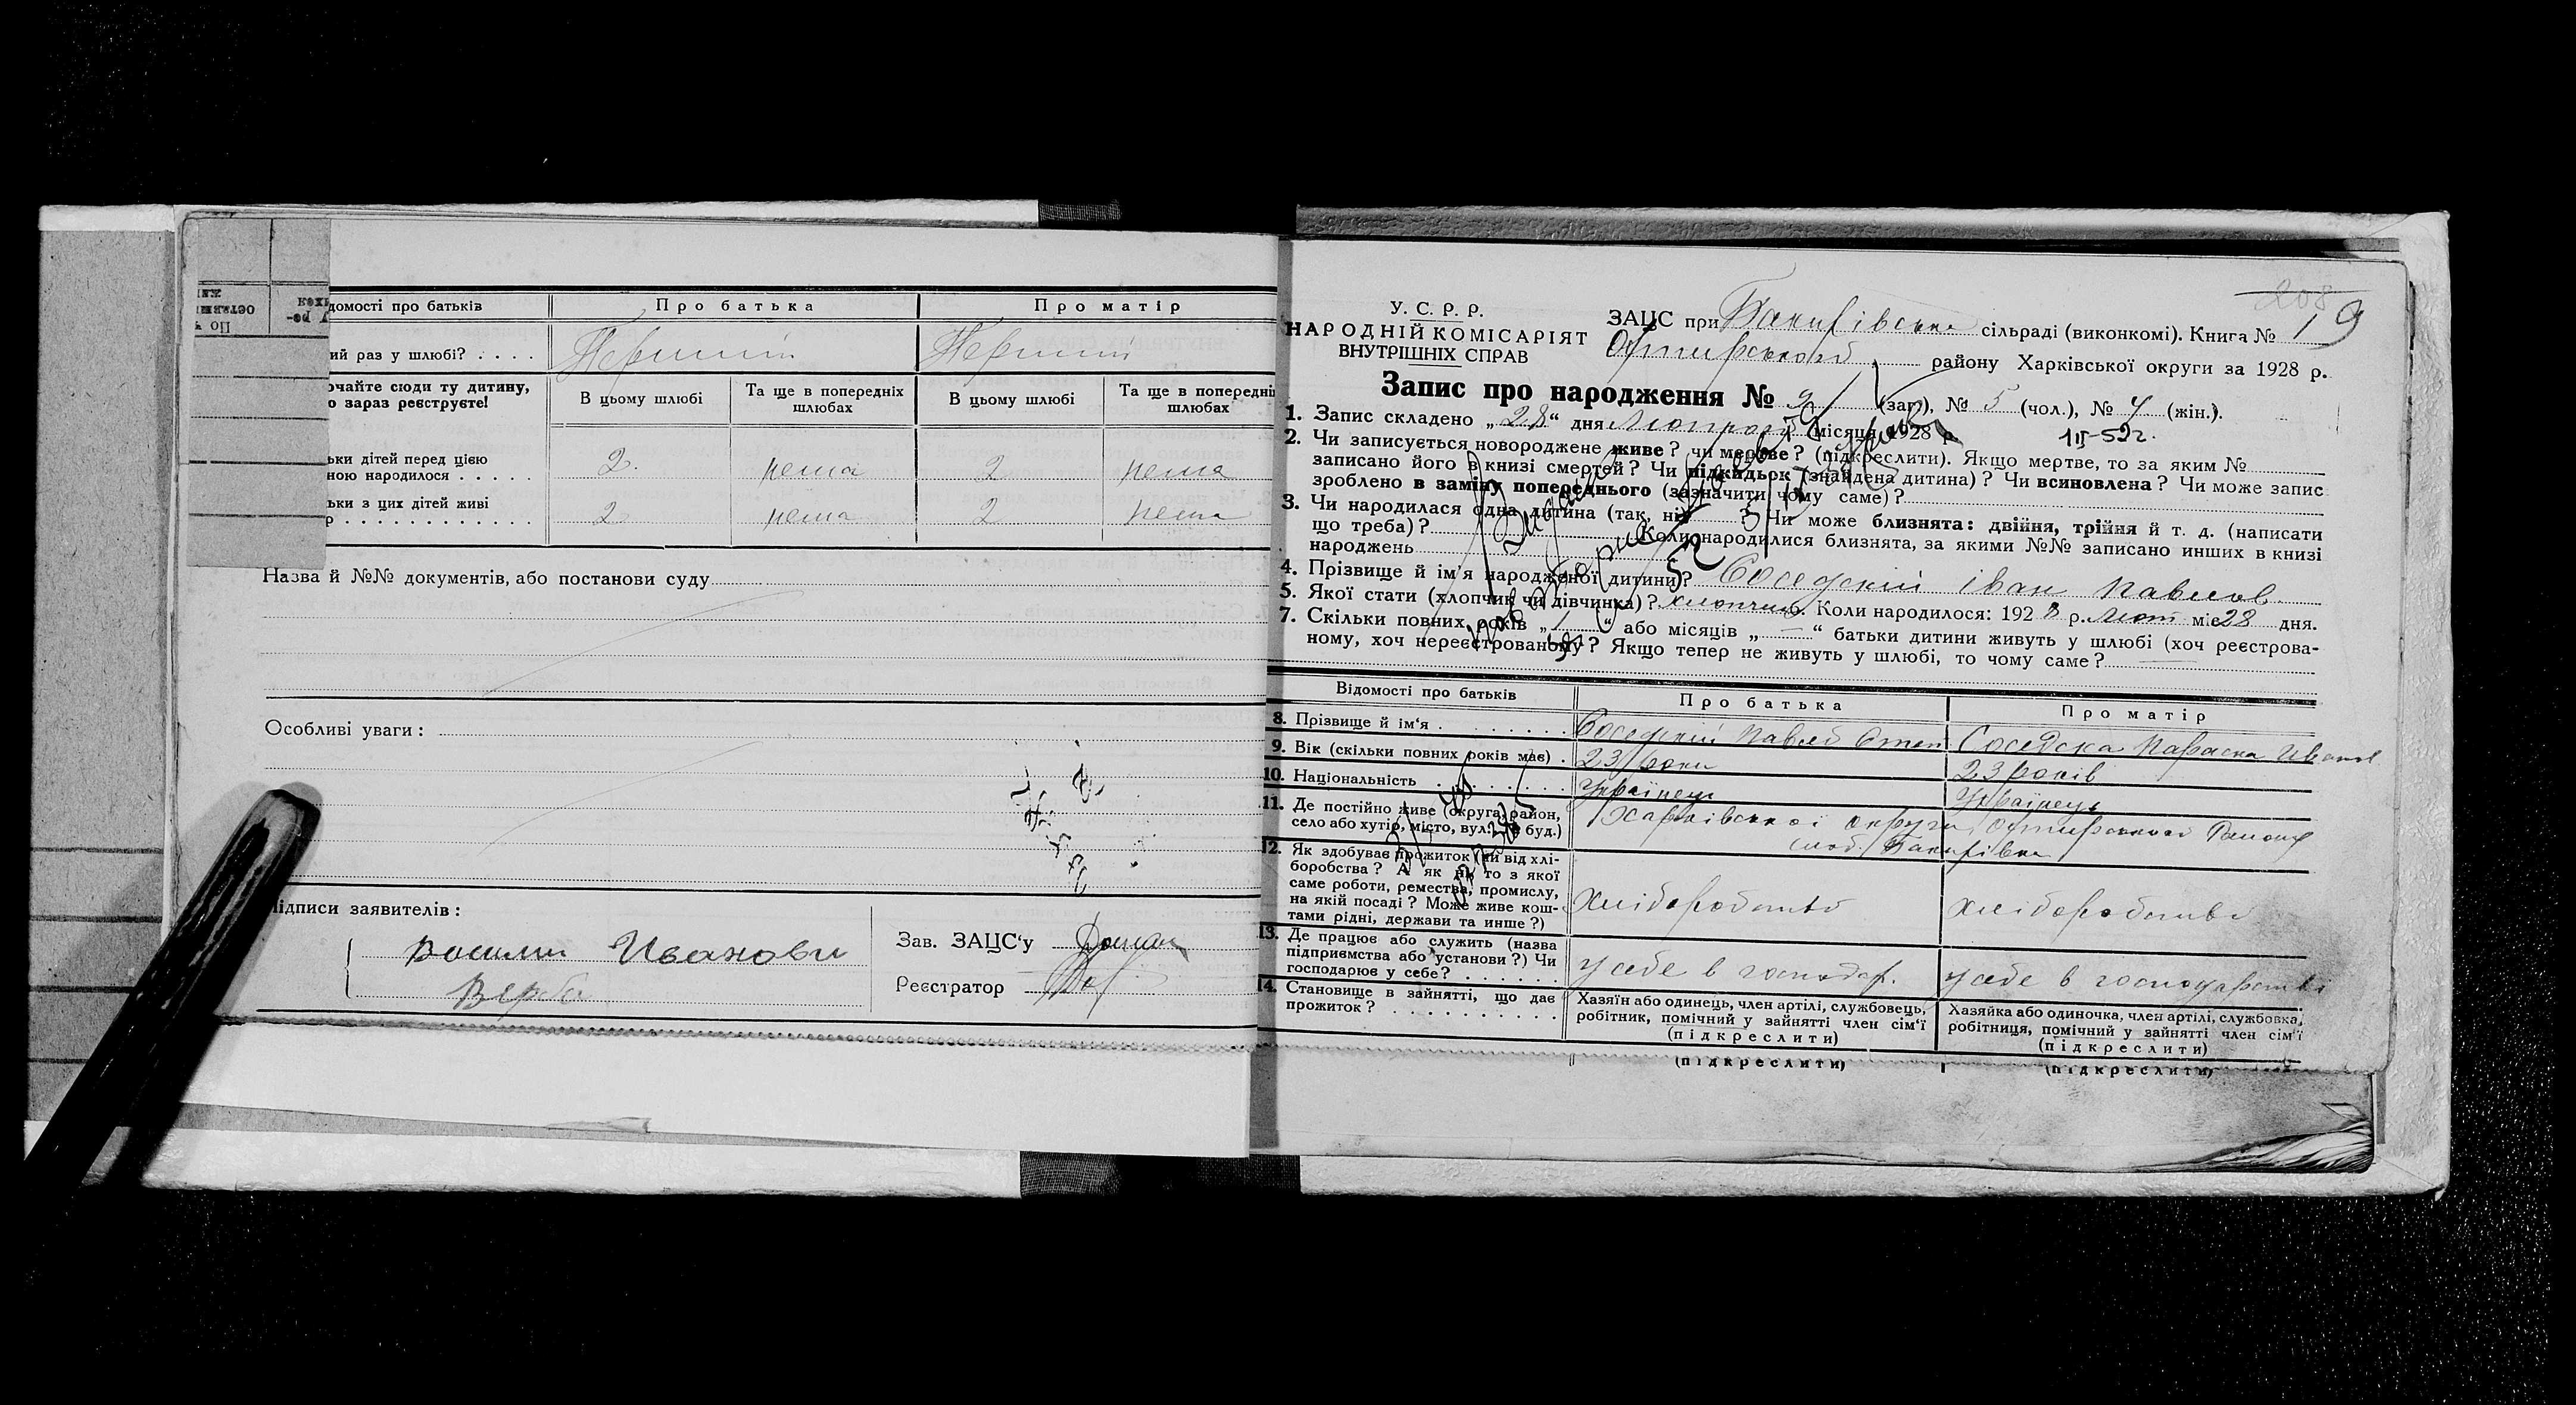 домості про батьків
Про батька
Про матір
ий раз у шлюбі? . . . .
Перший
Перший
очайте сюди ту дитину,
о зараз реєструєте!
В цьому шлюбі
Та ще в попередніх шлюбах
В цьому шлюбі
Та ще в попередні шлюбах
ьки дітей перед цією
ною народилося . . . . .
2.
нема
2
нема
ьки з цих дітей живі
р . . . . . . . . . . . . .
2
нема
2
нема
Назва й №№ документів, або постанови суду
Особливі уваги:
ідписи заявителів:
Василий Иванови
Верба
Зав. ЗАЦС'у
Реєстратор
208
9
У. С. Р. Р.
НАРОДНІЙ КОМІСАРІЯТ
ВНУТРІШНІХ СПРАВ
ЗАЦС при Бакирівська сільраді (виконкомі). Книга № 1
Охтирського району Харківської округи за 1928 р.
Запис про народження № 9 (заг), № 5 (чол.), № 4 (жін.).
1. Запис складено „28“ дня Лютого місяця 1928 р
1ІІ-52г.
2. Чи записується новороджене живе? чи мертве? (підкреслити). Якщо мертве, то за яким №
записано його в книзі смертей? Чи підкидьок (знайдена дитина)? Чи всиновлена? Чи може запис
зроблено в заміну попереднього (зазначити чому саме)?
3. Чи народилася одна дитина (так, ні) ? Чи може близнята: двійня, трійня й т. д. (написати
що треба)? Коли народилися близнята, за якими №№ записано инших в книзі
народжень
4. Прізвище й ім'я народженої дитини? Соседский Іван Павлов
5. Якої стати (хлопчик чи дівчинка)? хлопчик. Коли народилося: 1928 р. Лют міс 28 дня.
7. Скільки повних років „ “ або місяців „—“ батьки дитини живуть у шлюбі (хоч реєстрова-
ному, хоч нереєстрованому? Якщо тепер не живуть у шлюбі, то чому саме?
Відомості про батьків
Про батька
Про матір
8. Прізвище й ім'я . . . . . . . .
Соседский Павел Степ
Соседска Параска Иванов
9. Вік (скільки повних років має) .
23 роки
23 років
10. Національність . . . . . . . .
Українець
Українець
11. Де постійно живе (округа, район,
село або хутір, місто, вул. № буд.)
Харківської округи Охтирського Району
слоб. Бакирівка
12. Як здобуває прожиток (чи від хлі-
боробства? А як ні, то з якої
саме роботи, ремества, промислу,
на якій посаді? Може живе кош-
тами рідні, держави та инше?)
Хліборобство
хліборобство
13. Де працює або служить (назва
підприємства або установи?) Чи
господарює у себе? . . . . . .
у себе в господар.
у себе в господарстві
14. Становище в зайнятті, що дає
прожиток? . . . . . . . . . .
Хазяїн або одинець, член артілі, службовець,
робітник, помічний у зайнятті член сім'ї
(підкреслити)
Хазяйка або одиночка, член артілі, службовка,
робітниця, помічний у зайнятті член сім'ї
(підкреслити)
(підкреслити)
(підкреслити)